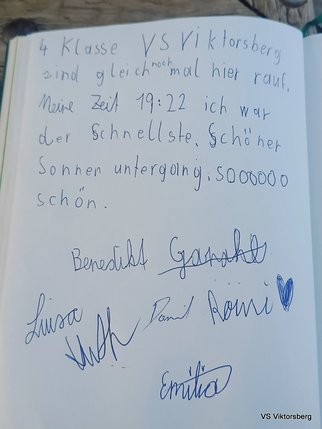 4 Klasse VS Viktorsberg
sind gleich noch mal hier rauf.
Meine Zeit 19:22 ich war
der Schnellste. Schöner
Sonnen untergang. sooooooo
schön.
Benedikt
Luisa
Emilia
VS Viktorsberg